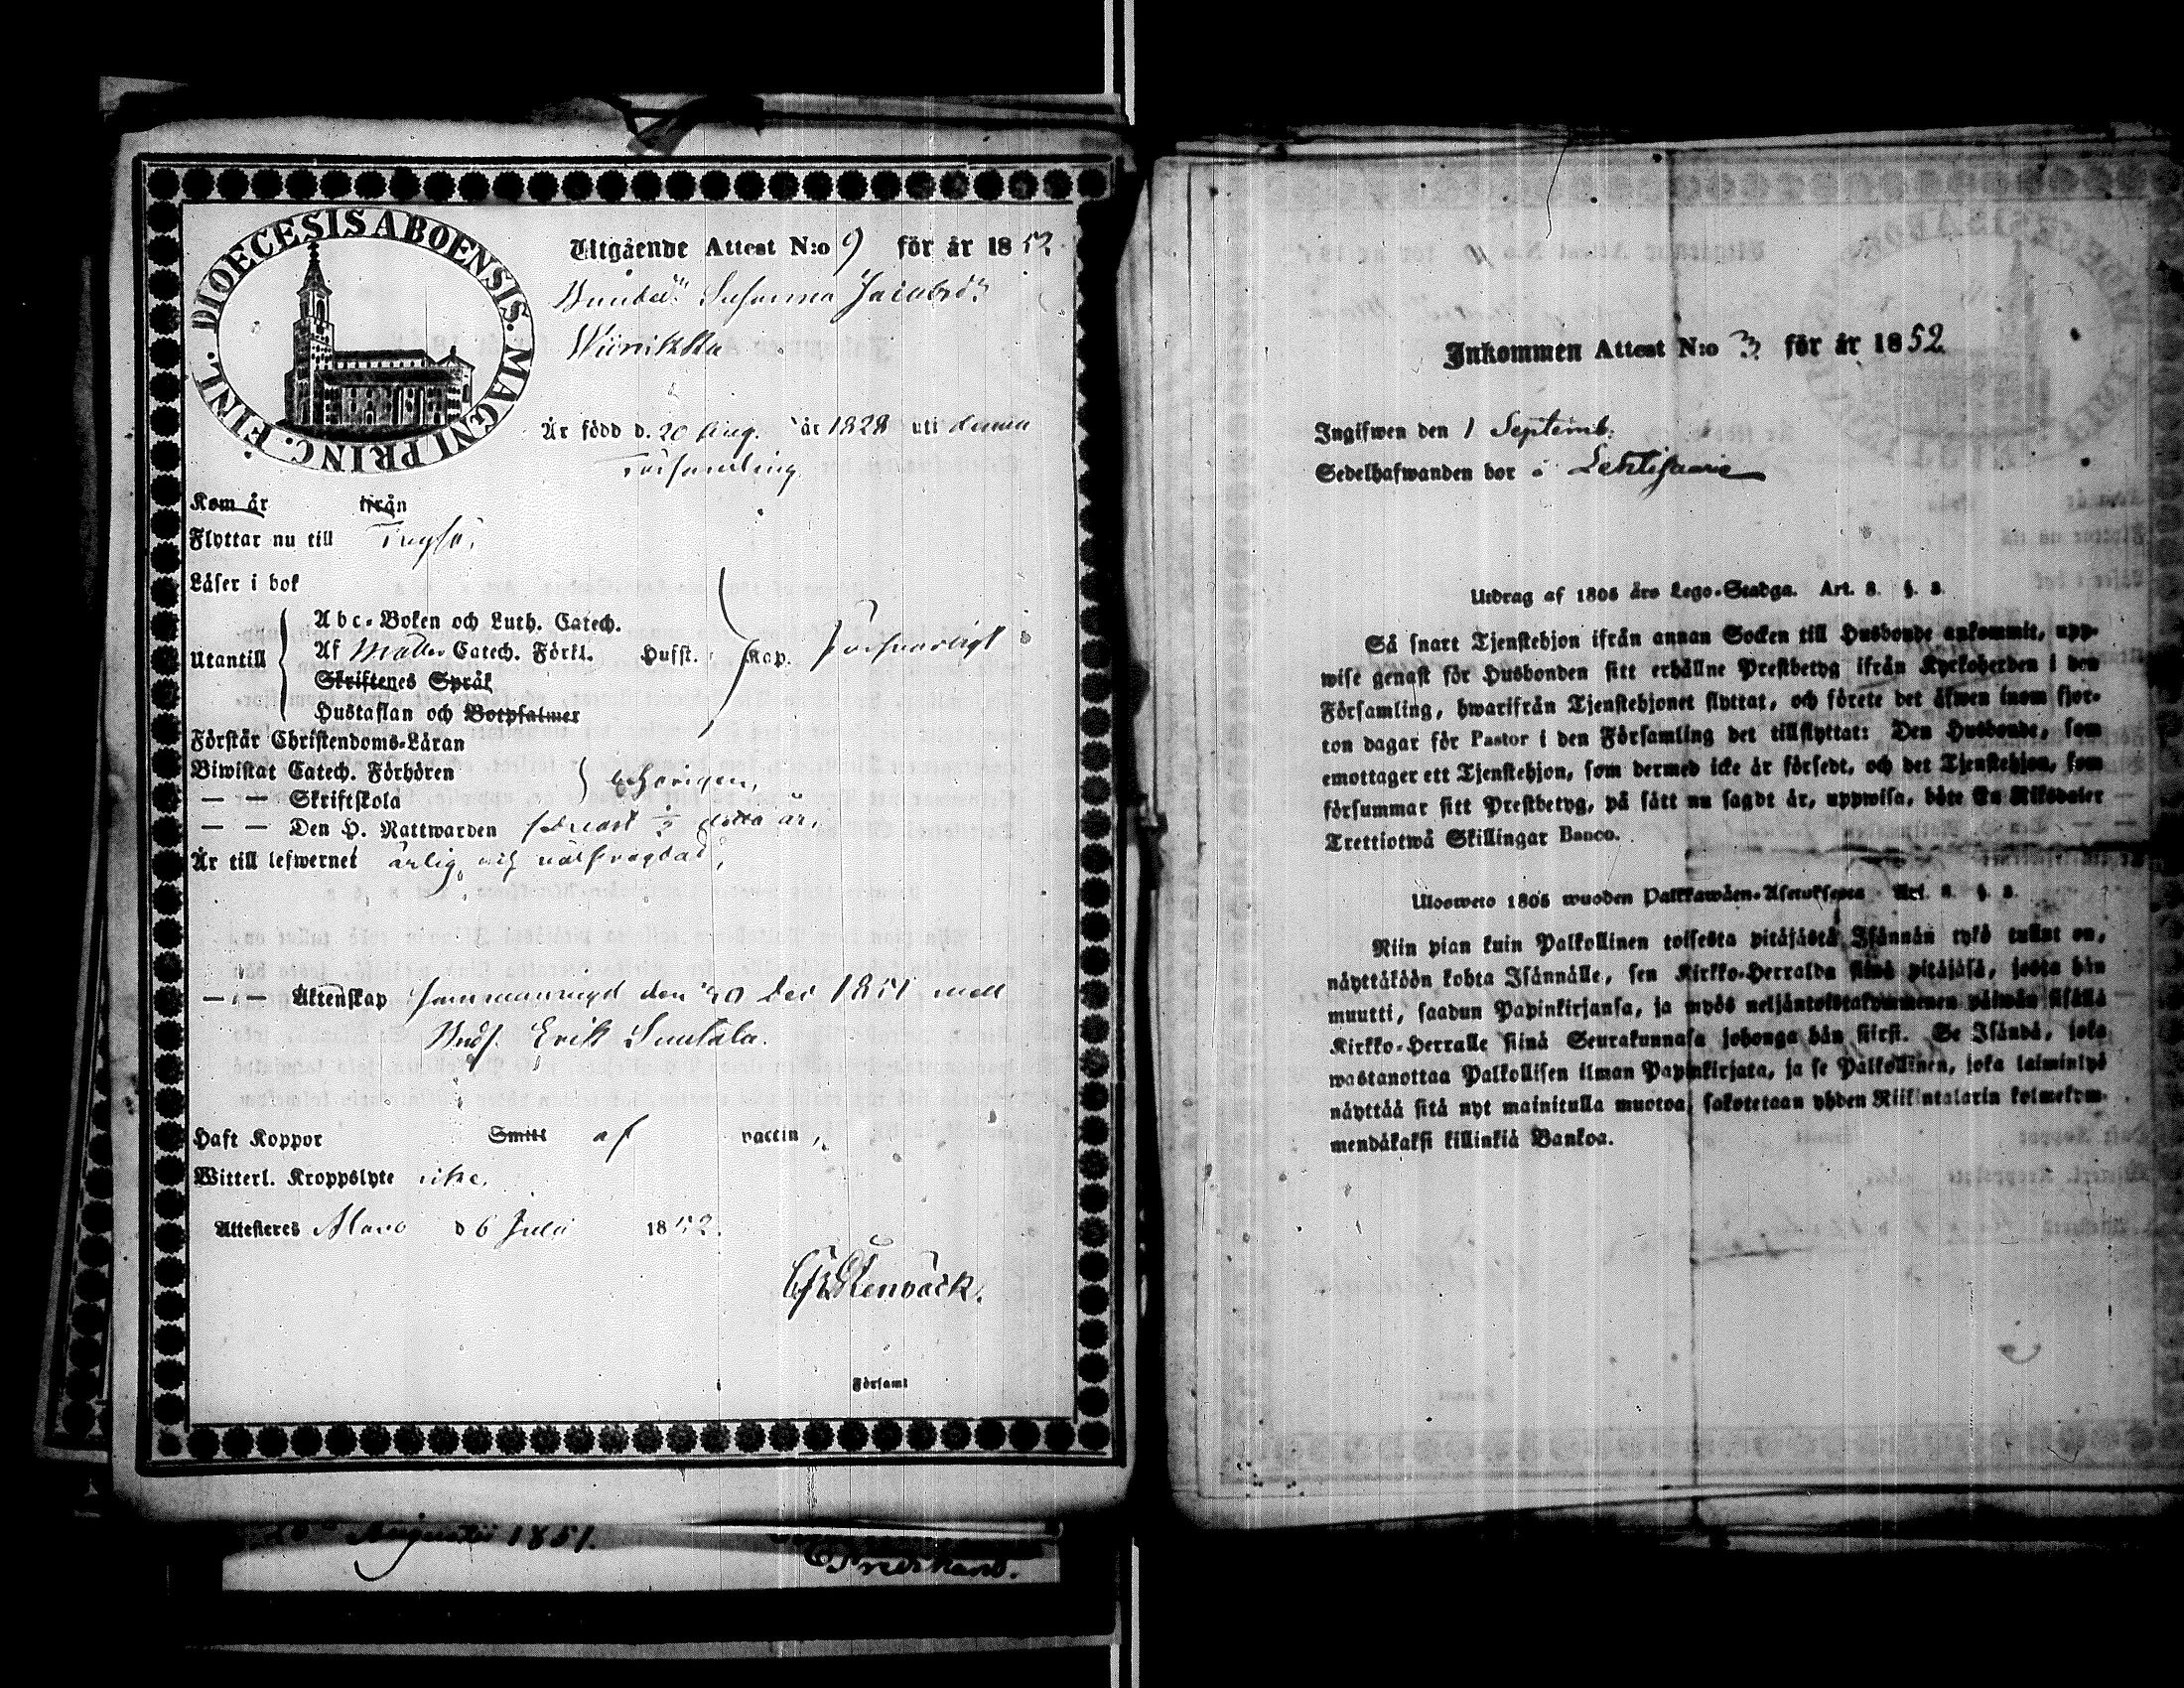 DIOECESIS ABOENSIS. MAGNI PRINC. FINL.
Utgående Attest N:o 9 för år 1852.
Susanna Jacobsdr
Är född d. 20 Aug. år 1828 uti denna
Församling
Kom år ifrån
Flyttar nu till Töysä,
Läser i bok
Abc-Boken och Luth. Catech.
Utantill Af Möllers Catech. Förkl. Husst. Kap. försvarligt
Skriftenes Språk
Hustaflan och Botpsalmer
Förstår Christendoms-Läran
Biwistat Catech. Förhören
— — Skriftskola behörigen,
— — Den H. Nattwarden senast detta år,
Är till lefwernet ärlig och välfrägdad,
— — Äktenskap sammanvigd den 30 Dec 1851 med
Erik Suutala.
Haft Koppor Smitt af vaccin,
Witterl. Kroppslyte icke.
Attesteres Alavo d 6 Julii 1852.
Stenbäck.
i Församl
Augusti 1851.
Inkommen Attest N:o 3 för år 1852
Ingifwen den 1 Septemb.
Sedelhafwanden bor å
Utdrag af 1805 års Lego-Stadga. Art. 8. §. 2.
Så snart Tjenstehjon ifrån annan Socken till Husbonde ankommit, upp-
wise genast för Husbonden sitt erhållne Prestbetyg ifrån Kyrkoherden i den
Församling, hwarifrån Tjenstehjonet flyttat, och förete det äfwen inom fjor-
ton dagar för Pastor i den Församling det tillflyttat: Den Husbonde, som
emottager ett Tjenstehjon, som dermed icke är försedt, och det Tjenstehjon, som
försummar sitt Prestbetyg, på sätt nu sagdt är, uppwisa, böte En Riksdaler
Trettiotwå Skillingar Banco.
Ulosweto 1805 wuoden Palkkawäen-Asetuksesta Art. 8. §. 2.
Niin pian kuin Palkollinen toisesta pitäjästä Isännän tykö tullut on,
näyttäköön kohta Isännälle, sen Kirkko-Herralda siinä pitäjäsä, josta hän
muutti, saadun Papinkirjansa, ja myös neljäntoistakymmenen päiwän sisällä
Kirkko-Herralle siinä Seurakunnasa johonga hän siirst. Se Isändä, joka
wastanottaa Palkollisen ilman Papinkirjata, ja se Palkollinen, joka laiminlyö
näyttää sitä nyt mainitulla muotoa, sakotetaan yhden Riikintalarin kolmekym-
mendäkaksi killinkiä Bankoa.